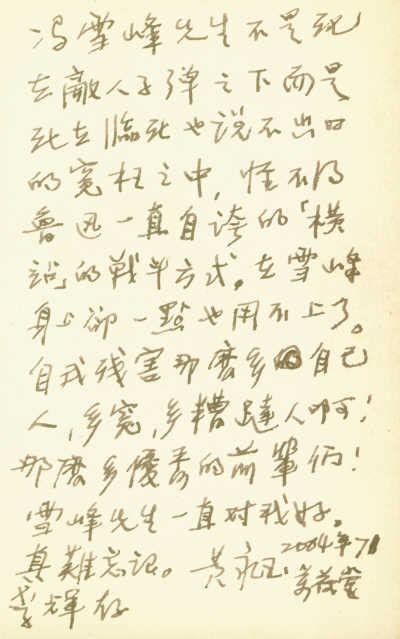 冯雪峰先生不是死
在敵人子弹之下而是
死在临死也说不出口
的寃枉之中，怪不得
鲁迅一直自誇的「横
站」的戰斗方式。在雪峰
身上卻一點也用不上了。
自我残害那麽多的自己
人，多寃，多糟蹋人啊！
那麽多優秀的前輩們！
雪峰先生一直对我好。
真難忘记。黄永玉 2004年7月
李輝存 萬荷堂